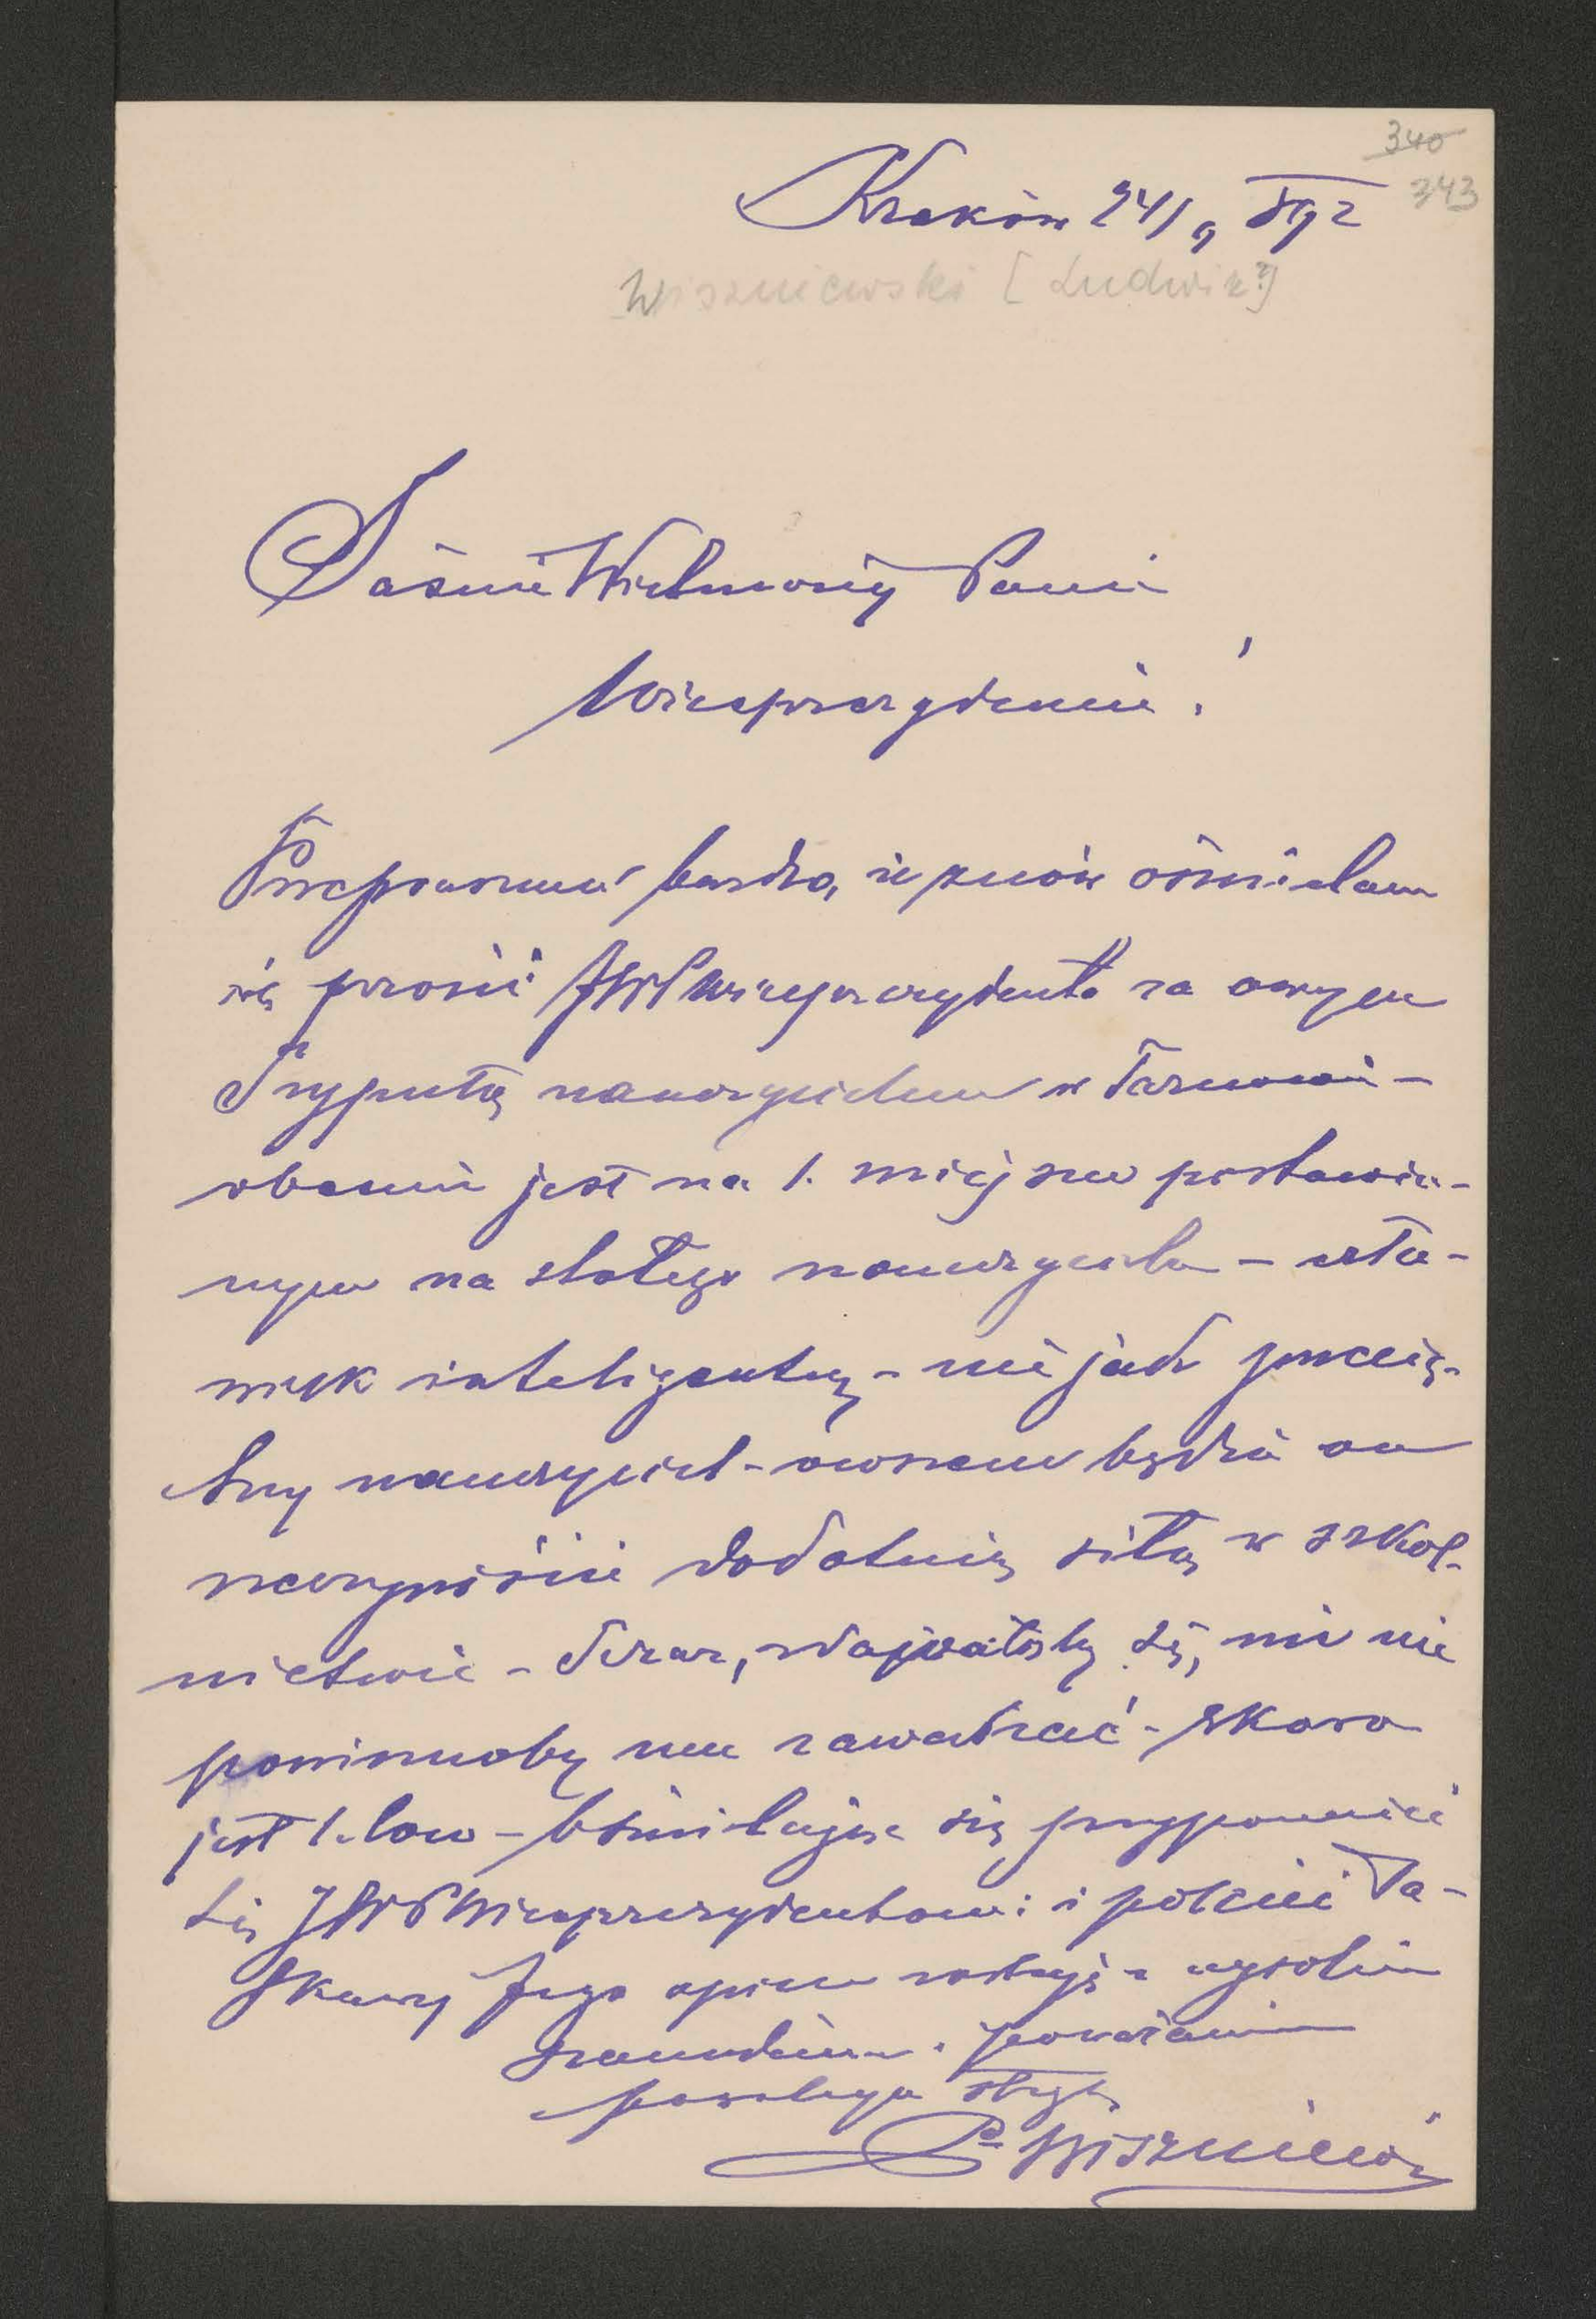 340
343
Kraków 24/9 892
Wiszniewski [Ludwik?]
Jaśnie Wielmożny Panie
Wiceprezydencie!
Przepraszam bardzo, że znów ośmielam
się prosić JWP Wiceprezydenta za owym
nauczycielem w Tarnowie –
obecnie jest na 1. miejscu postawio-
nym na stałego nauczyciela –
inteligentny – nie jako
nauczyciel – owszem będzie on
rzeczywiście dodatnią siłą w szkol-
nictwie – Teraz, zdawałoby się, nic nie
powinnoby mu zawadzać – skoro
jest 1. loco – Ośmielając się przypomnieć
się JWP Wiceprezydentowi i polecić Ła-
skawej Jego opiece zostaję z wysokim
szacunkiem i poważaniem
powolnym sługą
Wiszniewski